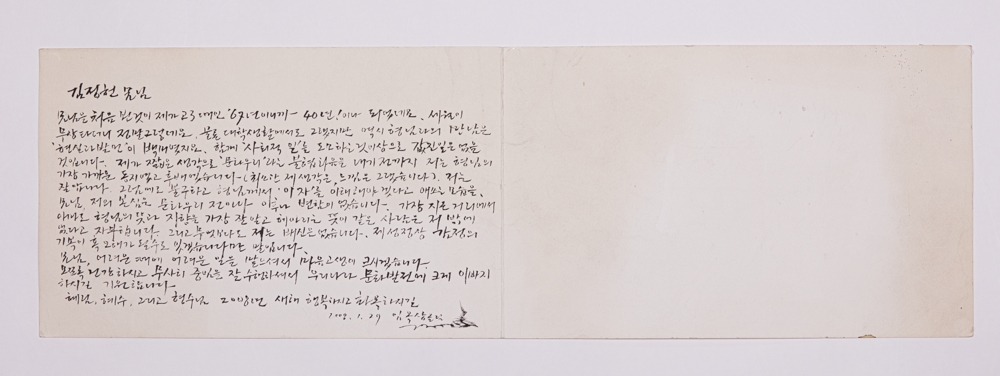 김정헌 형님
형님을 처음 뵌것이 제가 고3때인 '67년이니까 40년!이나 되었네요. 세월이
무상하다더니 정말그렇네요. 물론 대학생활에서도 그렇지만 역시 형님과의 만남은
'현실과발언'이 백미였지요. 함께 '사회적 일'을 도모하는것이상으로 값진일은 없을
것입니다. 제가 잡은 생각으로 '문화우리'라는
가장 가까운 동지였고 후배였습니다. (최소한 제 생각은, 느낌은 그랬습니다). 저는
잘 압니다. 그럼에도 불구하고 형님께서 '이 자'를 이해해야 겠다고 애쓰는 모습을.
형님 저의 본심은 문화우리 전이나 이후나 변함이 없습니다. 가장 지근 거리에서
아마도 형님의 뜻과 지향을 가장 잘알고 헤아리고 뜻이 같은 사람은 저 밖에
없다고 자부합니다. 그리고 무엇보다도 저는 배신은 없습니다. 제 성정상 감정의
기복이 폭 크기가 있겠습니다만 말입니다.
형님, 어려운 때에 어려운 일을 맡으셔서 마음고생이 크시겠습니다.
모쪼록 건강하시고 무사히 중임을 잘 수행하셔서 우리나라 문화발전에 크게 이바지
하시길 기원합니다.
혜림, 혜수, 그리고 현수님 2008년 새해 행복하시고 화목하시길
1. 29 임옥상